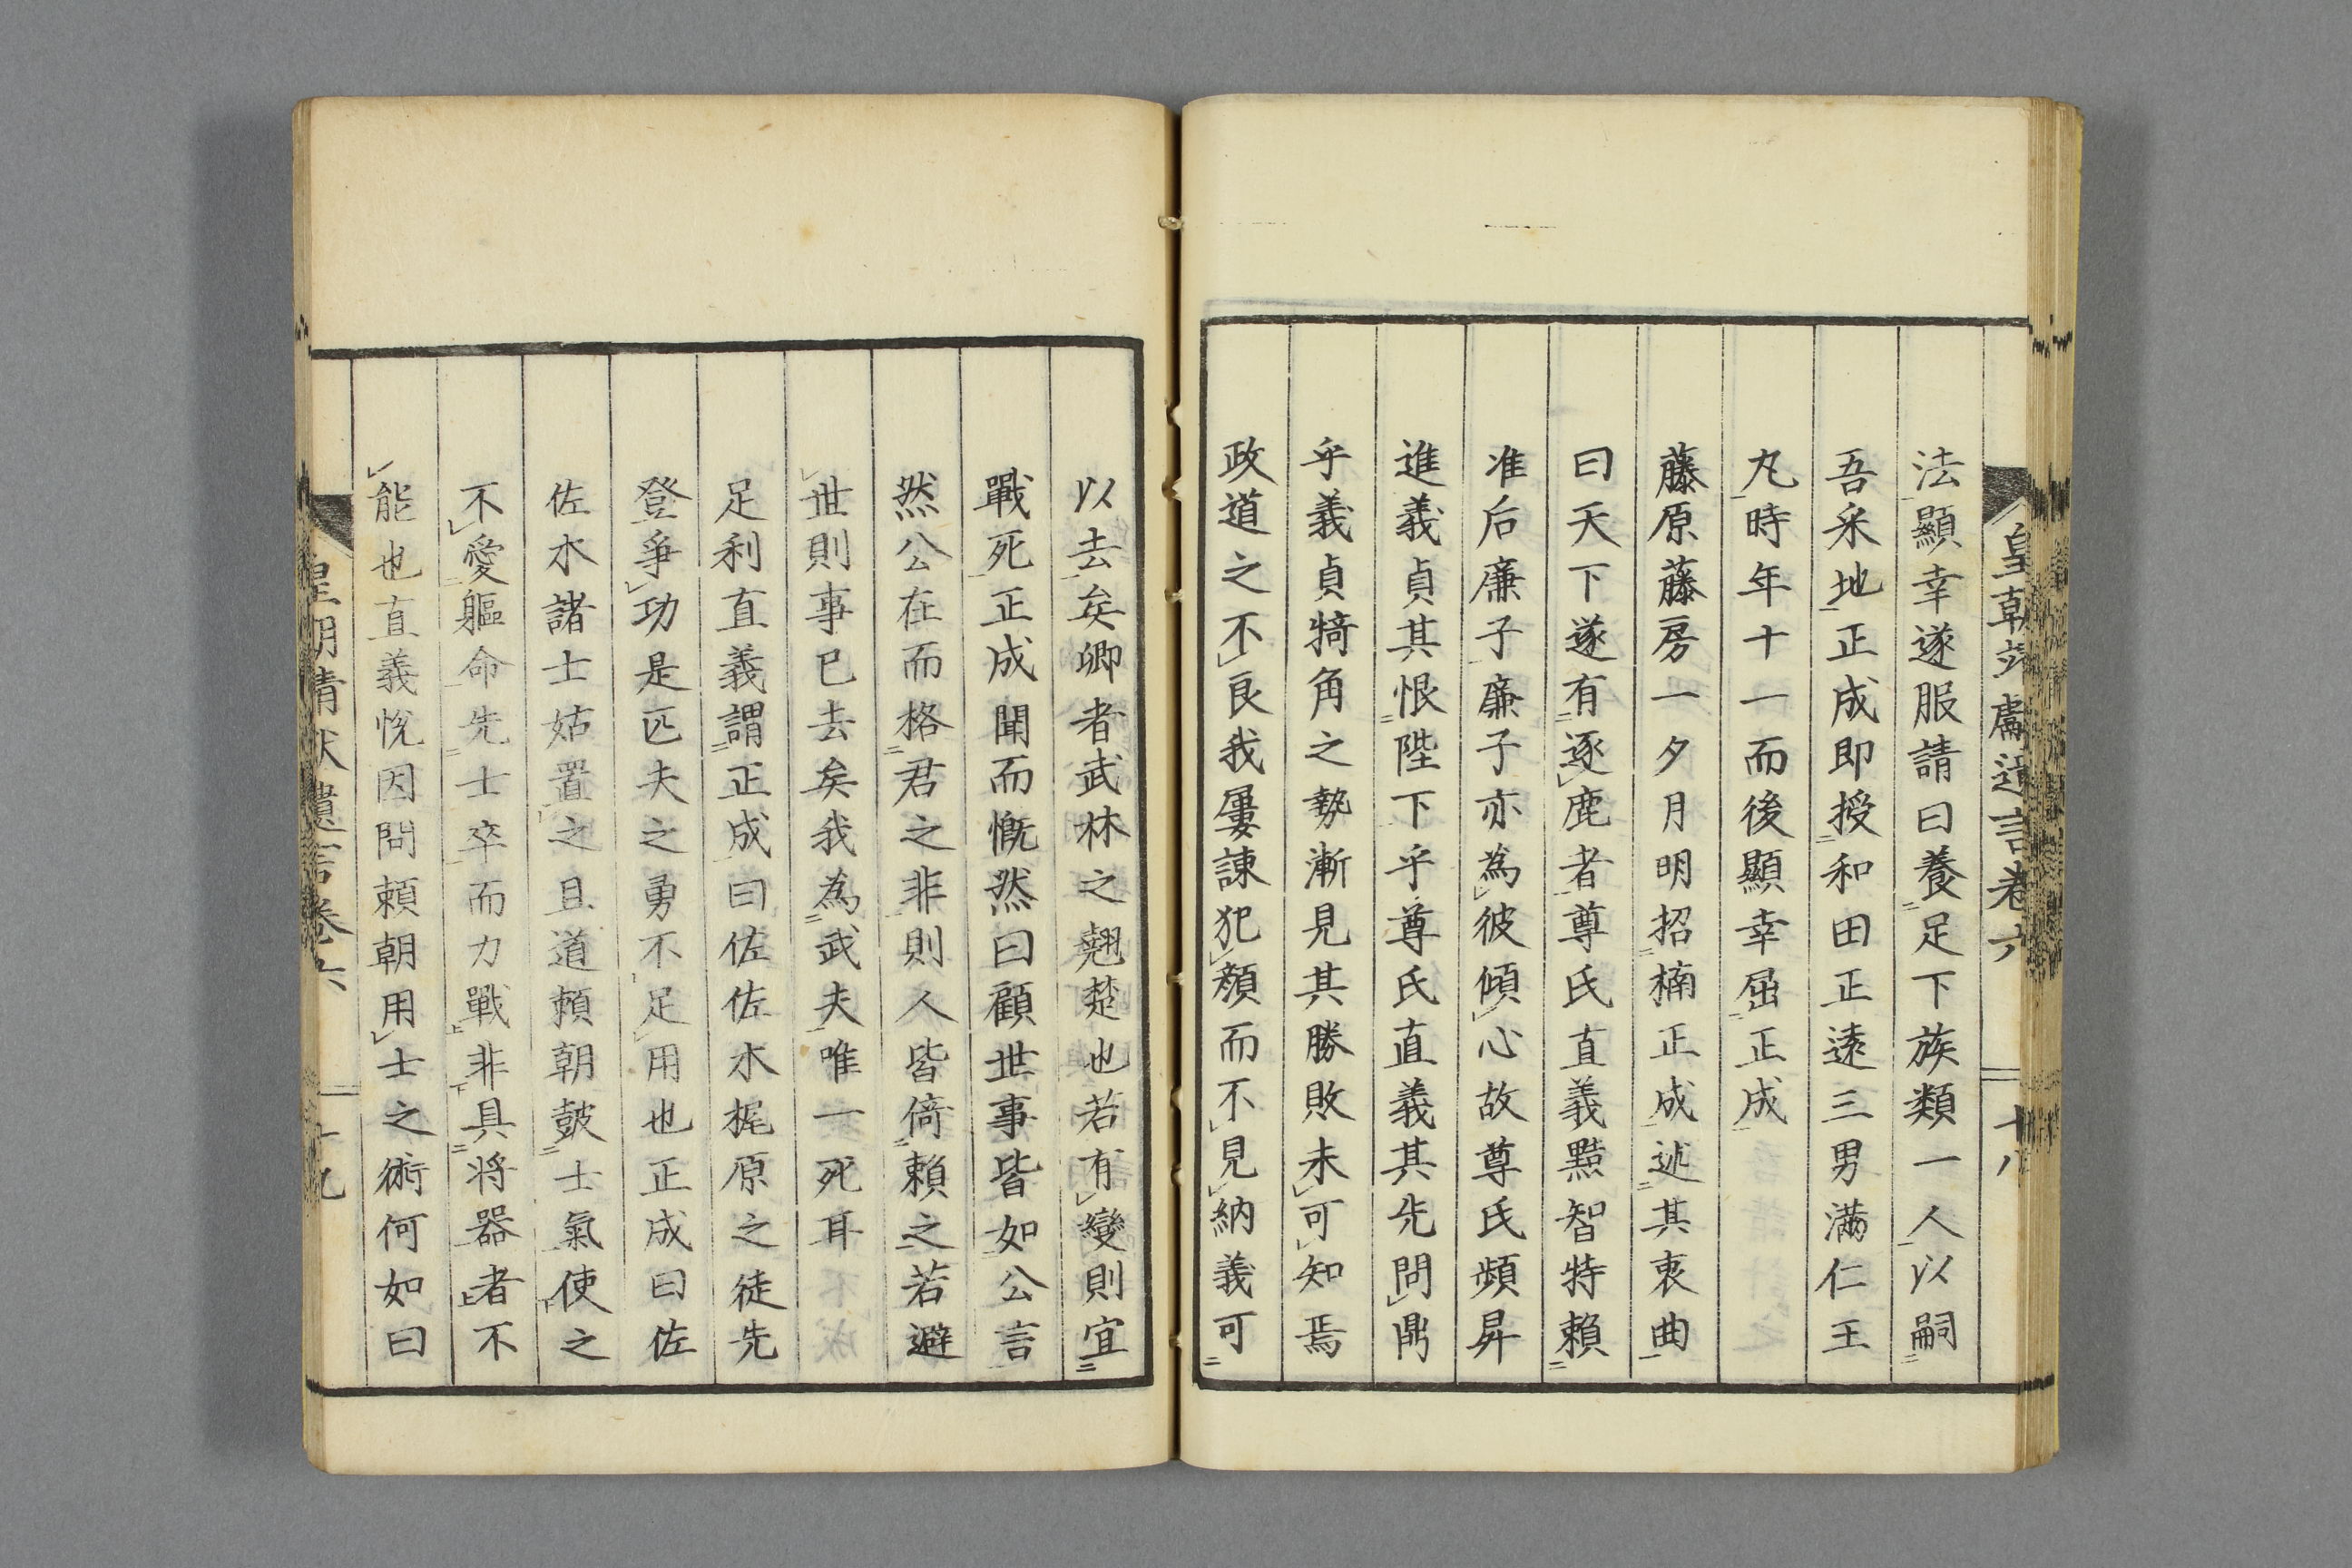 法顯幸遂服請曰養足下族類一人以嗣
吾采地正成即授和田正遠三男滿仁王
丸時年十一而後顯幸屈正成
藤原藤房一夕月明招楠正成述其衷曲
曰天下遂有逐鹿者尊氏直義黠智特賴
准后廉子廉子亦為彼傾心故尊氏頻昇
進義貞其恨陛下乎尊氏直義其先問鼎
乎義貞犄角之勢漸見其勝敗未可知焉
政道之不良我屢諫犯顏而不見納義可
以去矣卿者武林之翹楚也若有變則宜
戰死正成聞而慨然曰顧世事皆如公言
然公在而格君之非則人皆倚賴之若避
世則事已去矣我為武夫唯一死耳
足利直義謂正成曰佐佐木梶原之徒先
登爭功是匹夫之勇不足用也正成曰佐
佐木諸士姑置之且道賴朝鼓士氣使之
不愛軀命先士卒而力戰非具將器者不
能也直義悅因問賴朝用士之術何如曰
卷六